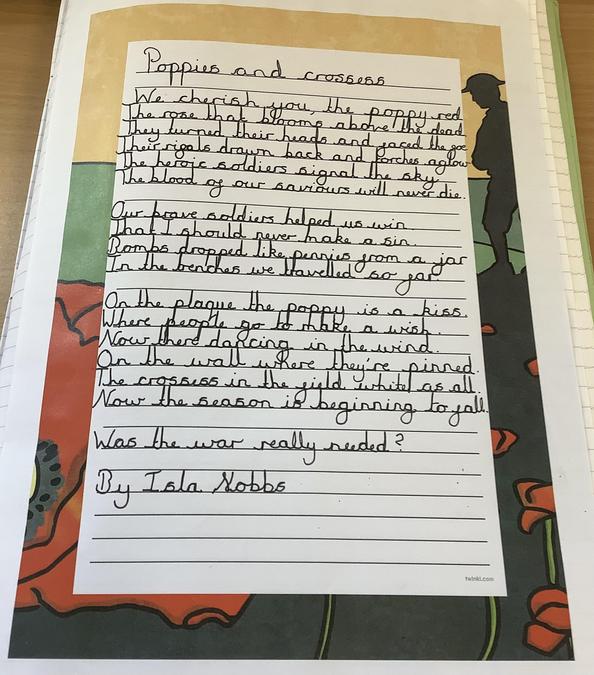 Poppies and crossess
We cherish you, the poppy red
The rose that blooms above the dead
They turned their heads and faced the foe
Their rifals drawn back and torches aglow
The heroic soldiers signal the sky.
The blood of our saviours will never die.
Our brave soldiers helped us win.
That I should never make a sin.
Bombs dropped like pennies from a jar
In the trenches we travelled so far.
On the plaque the poppy is a kiss.
Where people go to make a wish.
Now there dancing in the wind.
On the wall where they're pinned.
The crossess in the field, white as all.
Now the season is beginning to fall.
Was the war really needed?
By Isla Nobbs
twinkl.com